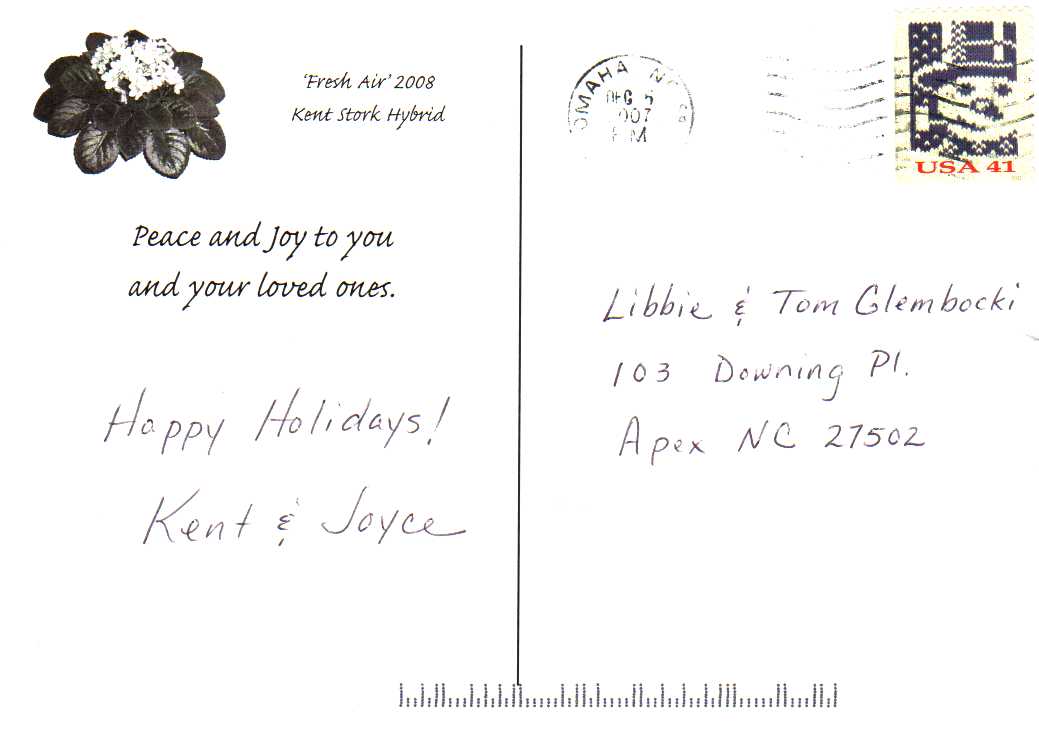 'Fresh Air' 2008
Kent Stork Hybrid
Peace and Joy to you
and your loved ones.
Happy Holidays!
Kent & Joyce
OMAHA
DEC 5
2007
PM
USA 41
Libbie & Tom Glembocki
103 Downing Pl.
Apex NC 27502